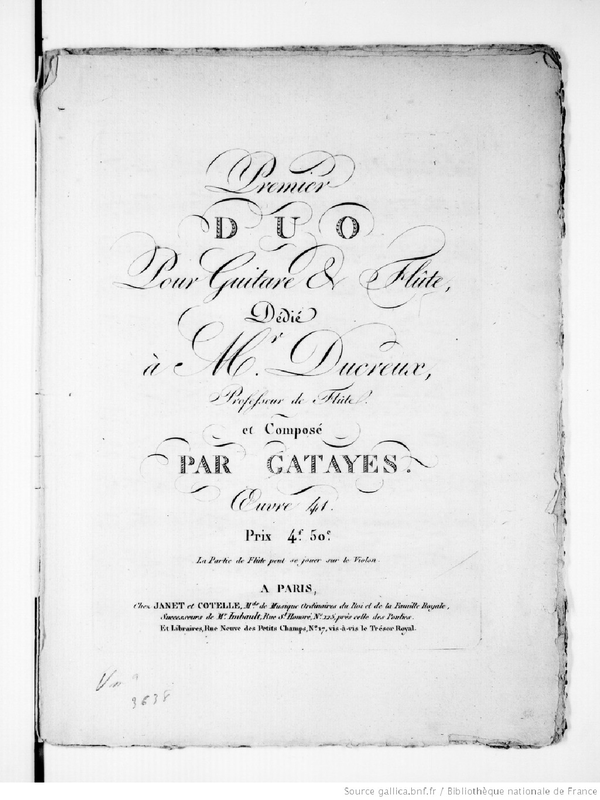 Premier
DUO
Pour Guitare & Flûte,
Dédié
à Mr. Ducreux,
Professeur de Flûte.
et Composé
PAR GATAYES.
Œuvre 41.
Prix 4f. 50c.
La Partie de Flûte peut se jouer sur le Violon.
A PARIS,
Chez JANET et COTELLE, Mds. de Musique Ordinaires du Roi et de la Famille Royale,
Successeurs de Mr. Imbault, Rue St. Honoré, No. 125, près celle des Poulies.
Et Libraires, Rue Neuve des Petits Champs, No. 17, vis-à-vis le Trésor Royal.
3638
Source gallica.bnf.fr / Bibliothèque nationale de France